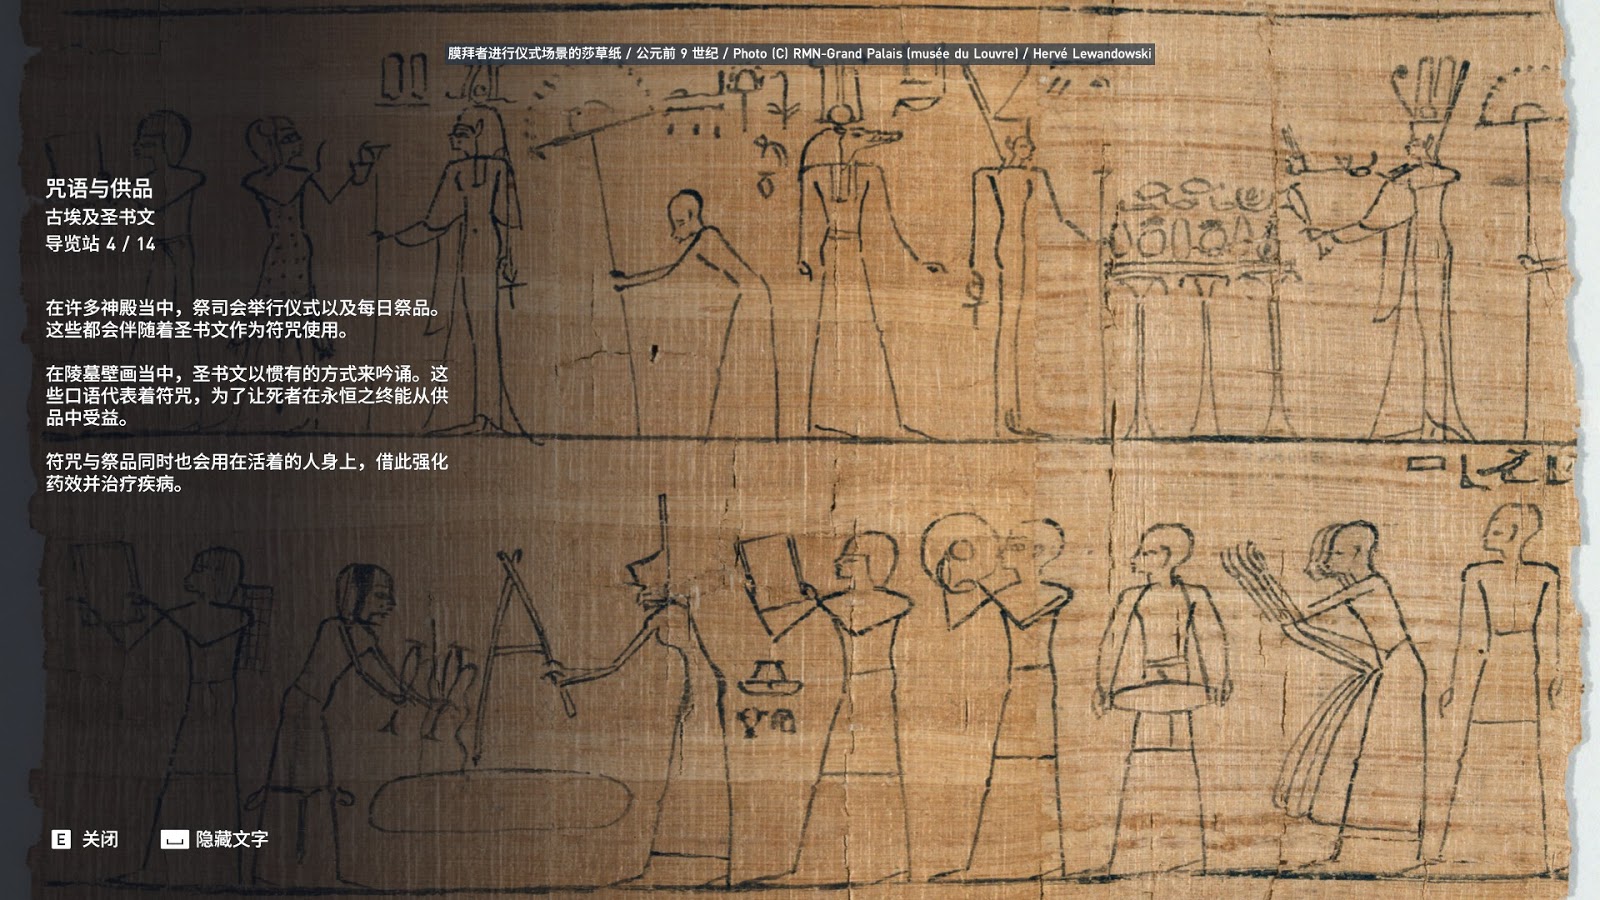 膜拜者进行仪式场景的莎草纸 / 公元前 9 世纪 / Photo (C) RMN-Grand Palais (musée du Louvre) / Hervé Lewandowski
咒语与供品
古埃及圣书文
导览站 4 / 14
在许多神殿当中，祭司会举行仪式以及每日祭品。
这些都会伴随着圣书文作为符咒使用。
在陵墓壁画当中，圣书文以惯有的方式来吟诵。这
些口语代表着符咒，为了让死者在永恒之终能从供
品中受益。
符咒与祭品同时也会用在活着的人身上，借此强化
药效并治疗疾病。
E 关闭 隐藏文字